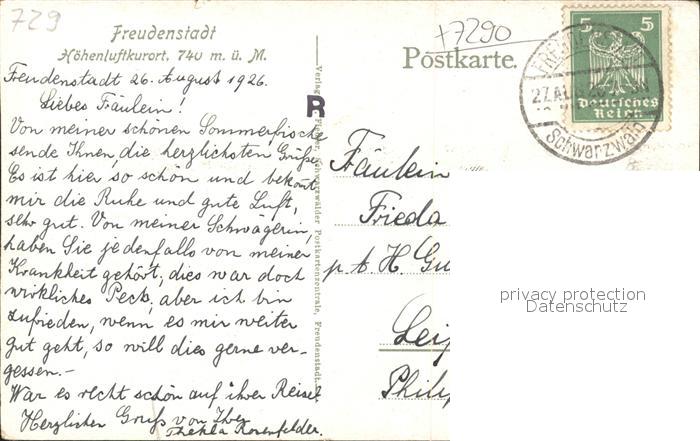 729
Freudenstadt
Höhenluftkurort, 740 m. ü. M.
+7290
Postkarte.
5 5
Deutsches
Reich
27.AU
Schwarzwald
Freudenstadt 26. August 1926.
Liebes Fräulein!
Von meiner schönen Sommerfrische
sende Ihnen die herzlichsten Grüße
Es ist hier so schön und bekommt
mir die Ruhe und gute Luft,
sehr gut. Von meiner Schwägerin,
haben Sie jedenfalls von meiner
Krankheit gehört, dies war doch
wirkliches Pech, aber ich bin
zufrieden, wenn es mir weiter
gut geht, so will dies gerne ver-
gessen.-
War es recht schön auf ihrer Reise?
Herzlichen Gruß von Ihrer
Thekla Rosenfelder.
R
Schwarzwälder Postkartenzentrale, Freudenstadt.
Fräulein
Frieda
p. A. H. Gu
Leip
Phili
privacy protection
Datenschutz